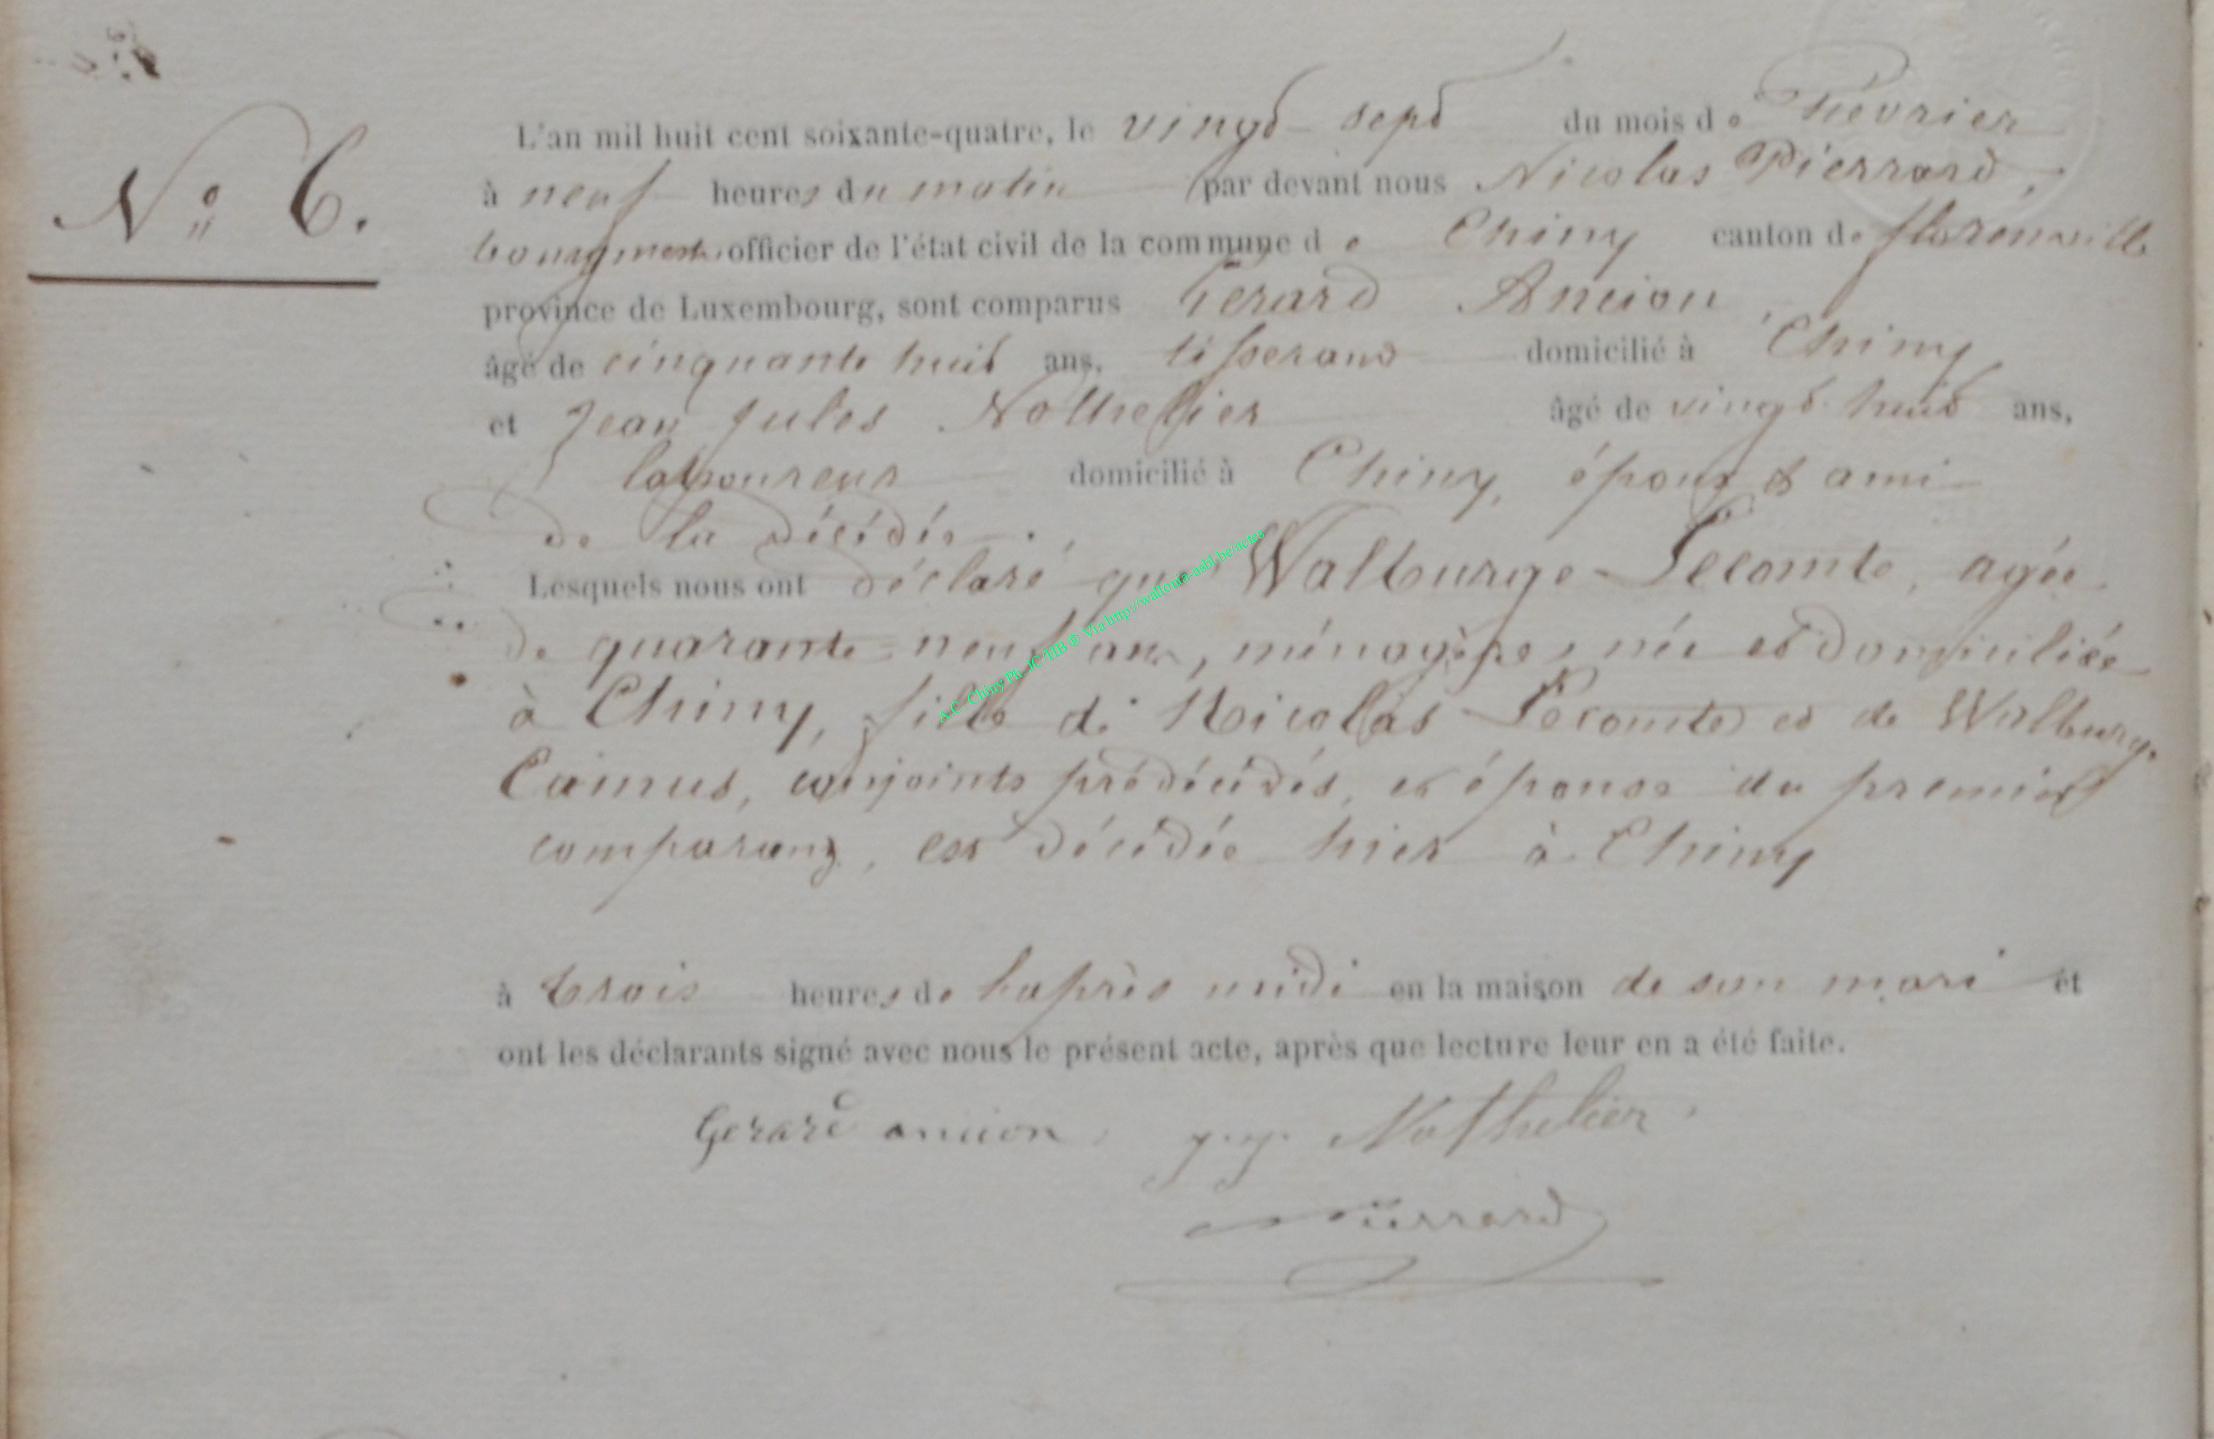 N° 6.
L'an mil huit cent soixante-quatre, le vingt sept du mois de Février
à neuf heures du matin par devant nous Nicolas Pierrard,
bourgmestre officier de l'état civil de la commune de Chiny canton de florenville
province de Luxembourg, sont comparus Gerard Ancion,
âgé de cinquante huit ans, tisserand domicilié à Chiny
et Jean Jules Nothelier âgé de vingt huit ans,
laboureur domicilié à Chiny, époux & ami
de la décédée.
Lesquels nous ont déclaré que Walburge Lecomte, agée
de quarante-neuf ans, ménagère, née et domiciliée
à Chiny, fille de Nicolas Lecomte et de Walburge
Camus, conjoints prédécédés, et épouse du premier
comparant, est décédée hier à Chiny
à trois heures de l'après midi en la maison de son mari et
ont les déclarants signé avec nous le présent acte, après que lecture leur en a été faite.
Gerard ancion. j.j. Nothelier
Pierrard